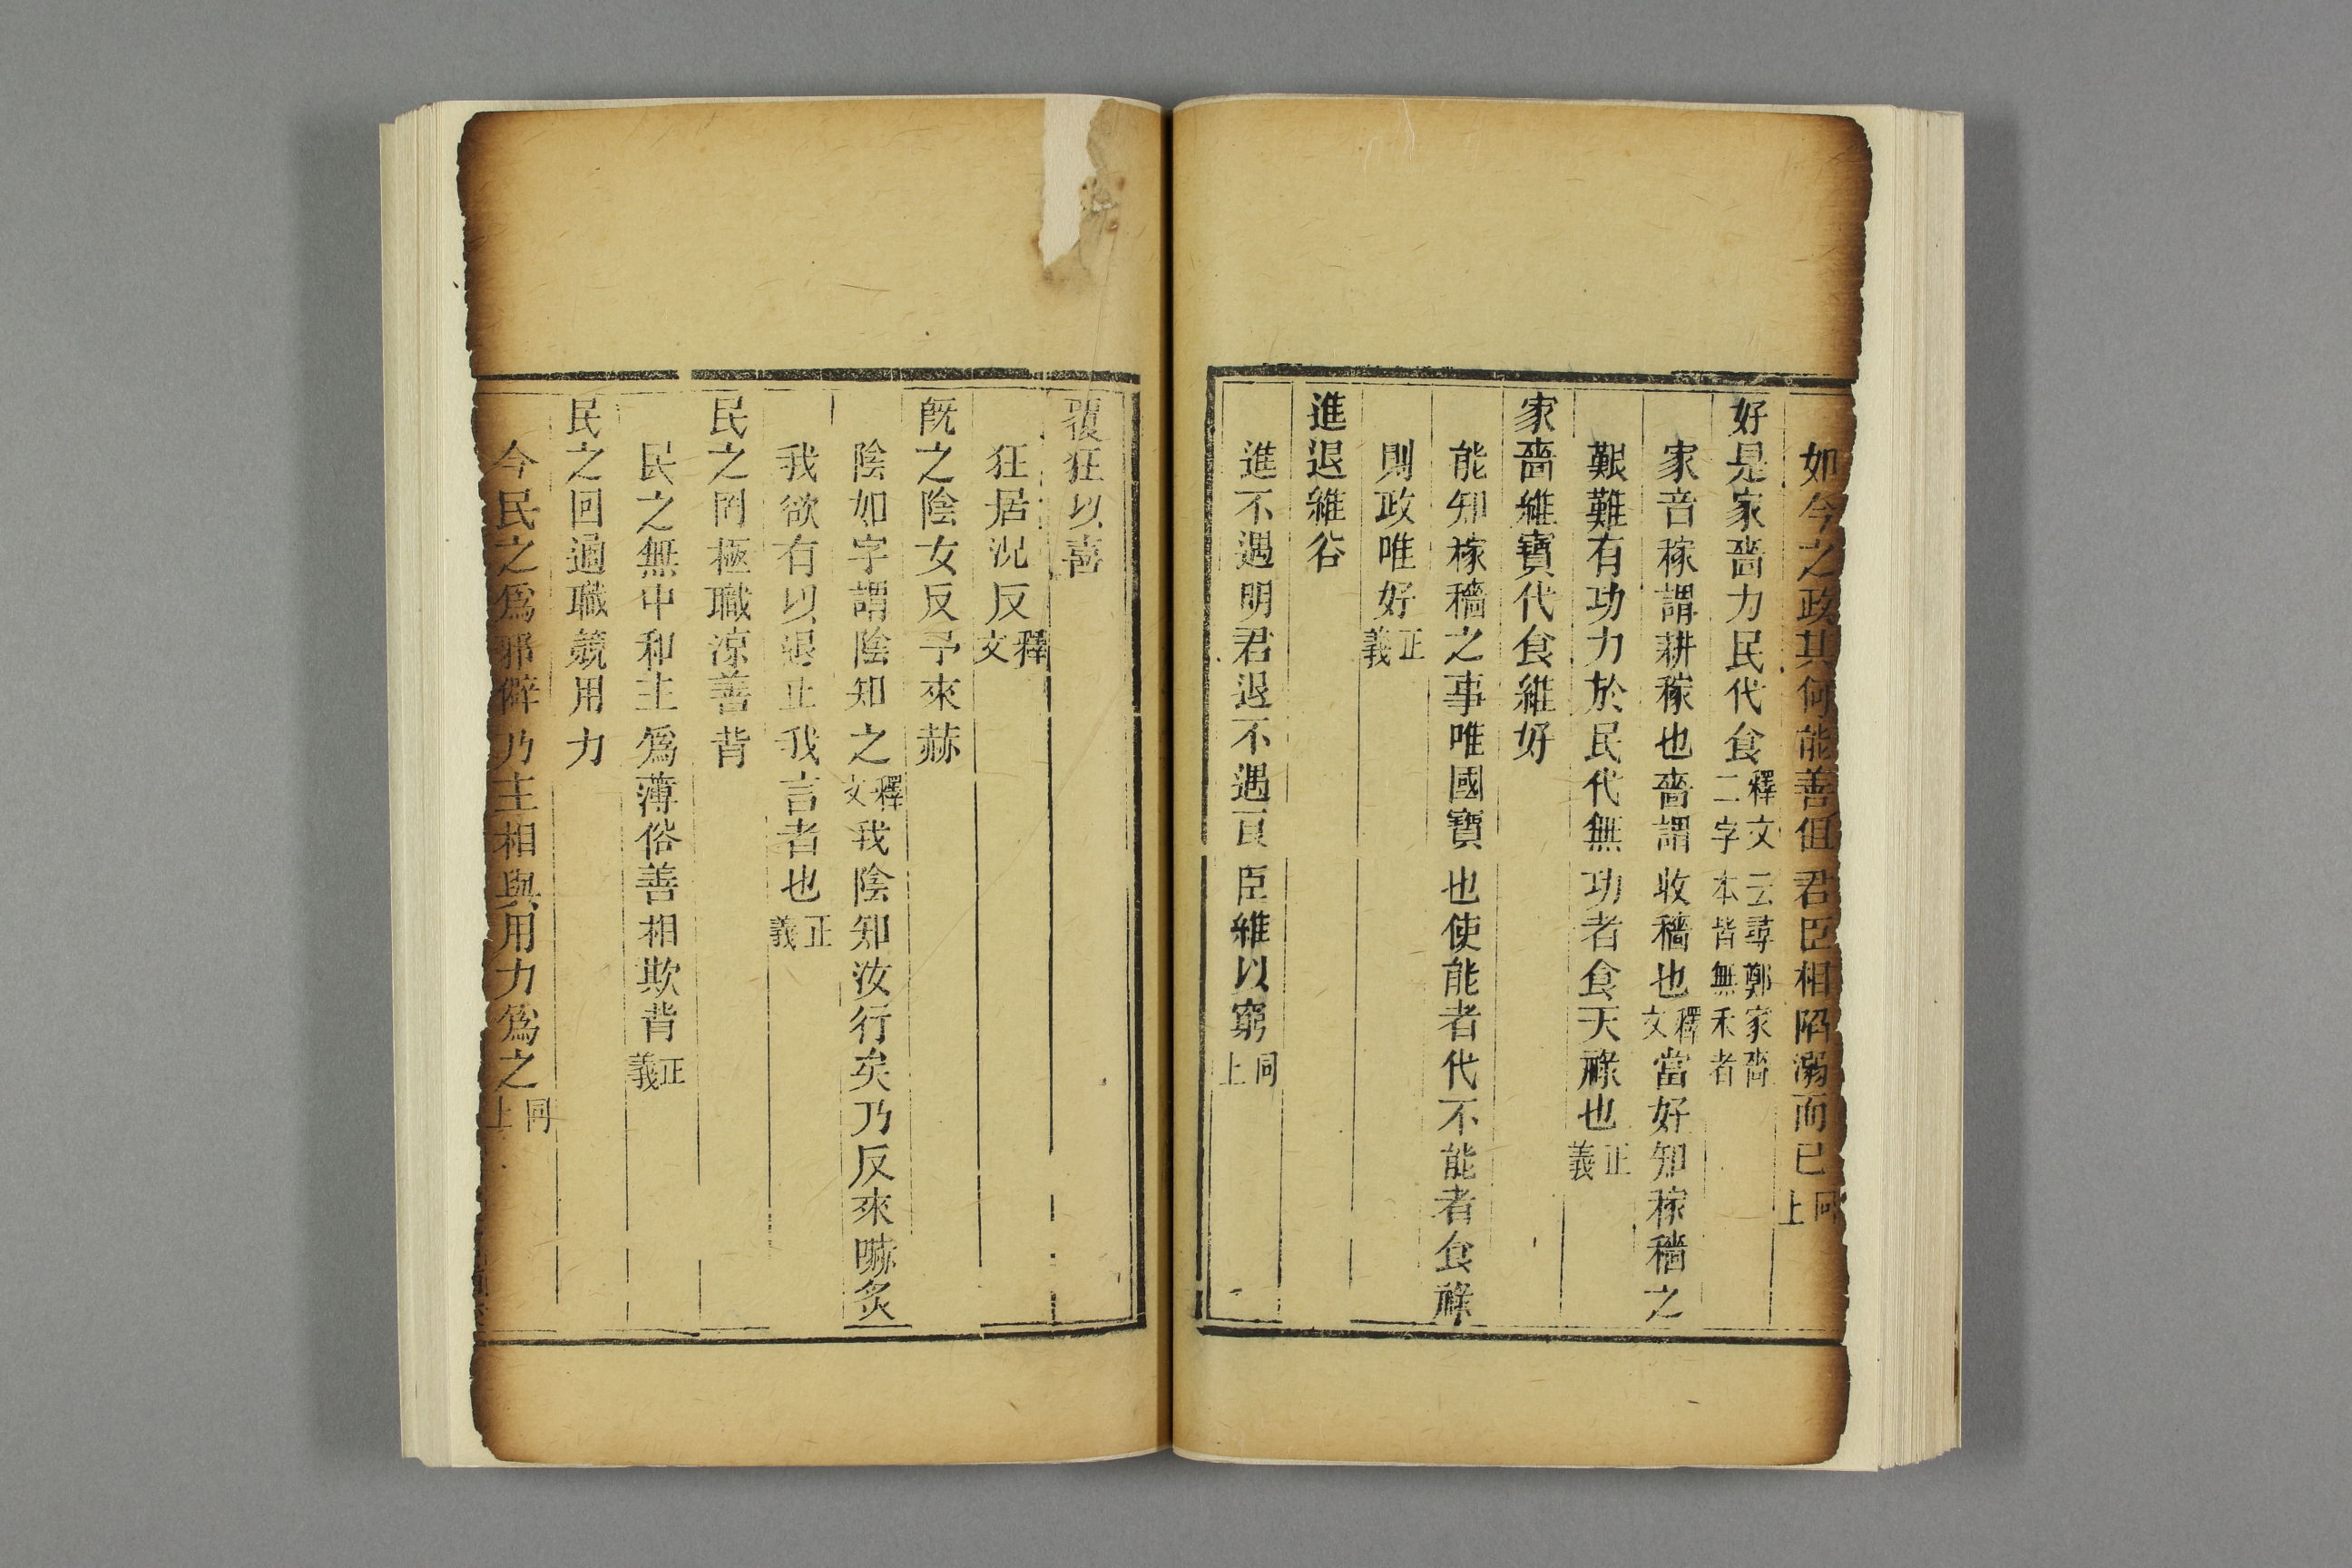 如今之政其何能善但君臣相陷溺而已同上
好是家嗇力民代食釋文云尋鄭家嗇二字本皆無禾者
家音稼謂耕稼也嗇謂收穡也釋文當好知稼穡之
艱難有功力於民代無功者食天祿也正義
家嗇維寶代食維好
能知稼穡之事唯國寶也使能者代不能者食祿
則政唯好正義
進退維谷
進不遇明君退不遇良臣維以窮同上
覆狂以喜
狂居況反釋文
既之陰女反予來赫
陰如字謂陰知之釋文我陰知汝行矣乃反來嚇炙
我欲有以退止我言者也正義
民之罔極職涼善背
民之無中和主為薄俗善相欺背正義
民之回遹職競用力
今民之為邪僻乃主相與用力為之同上